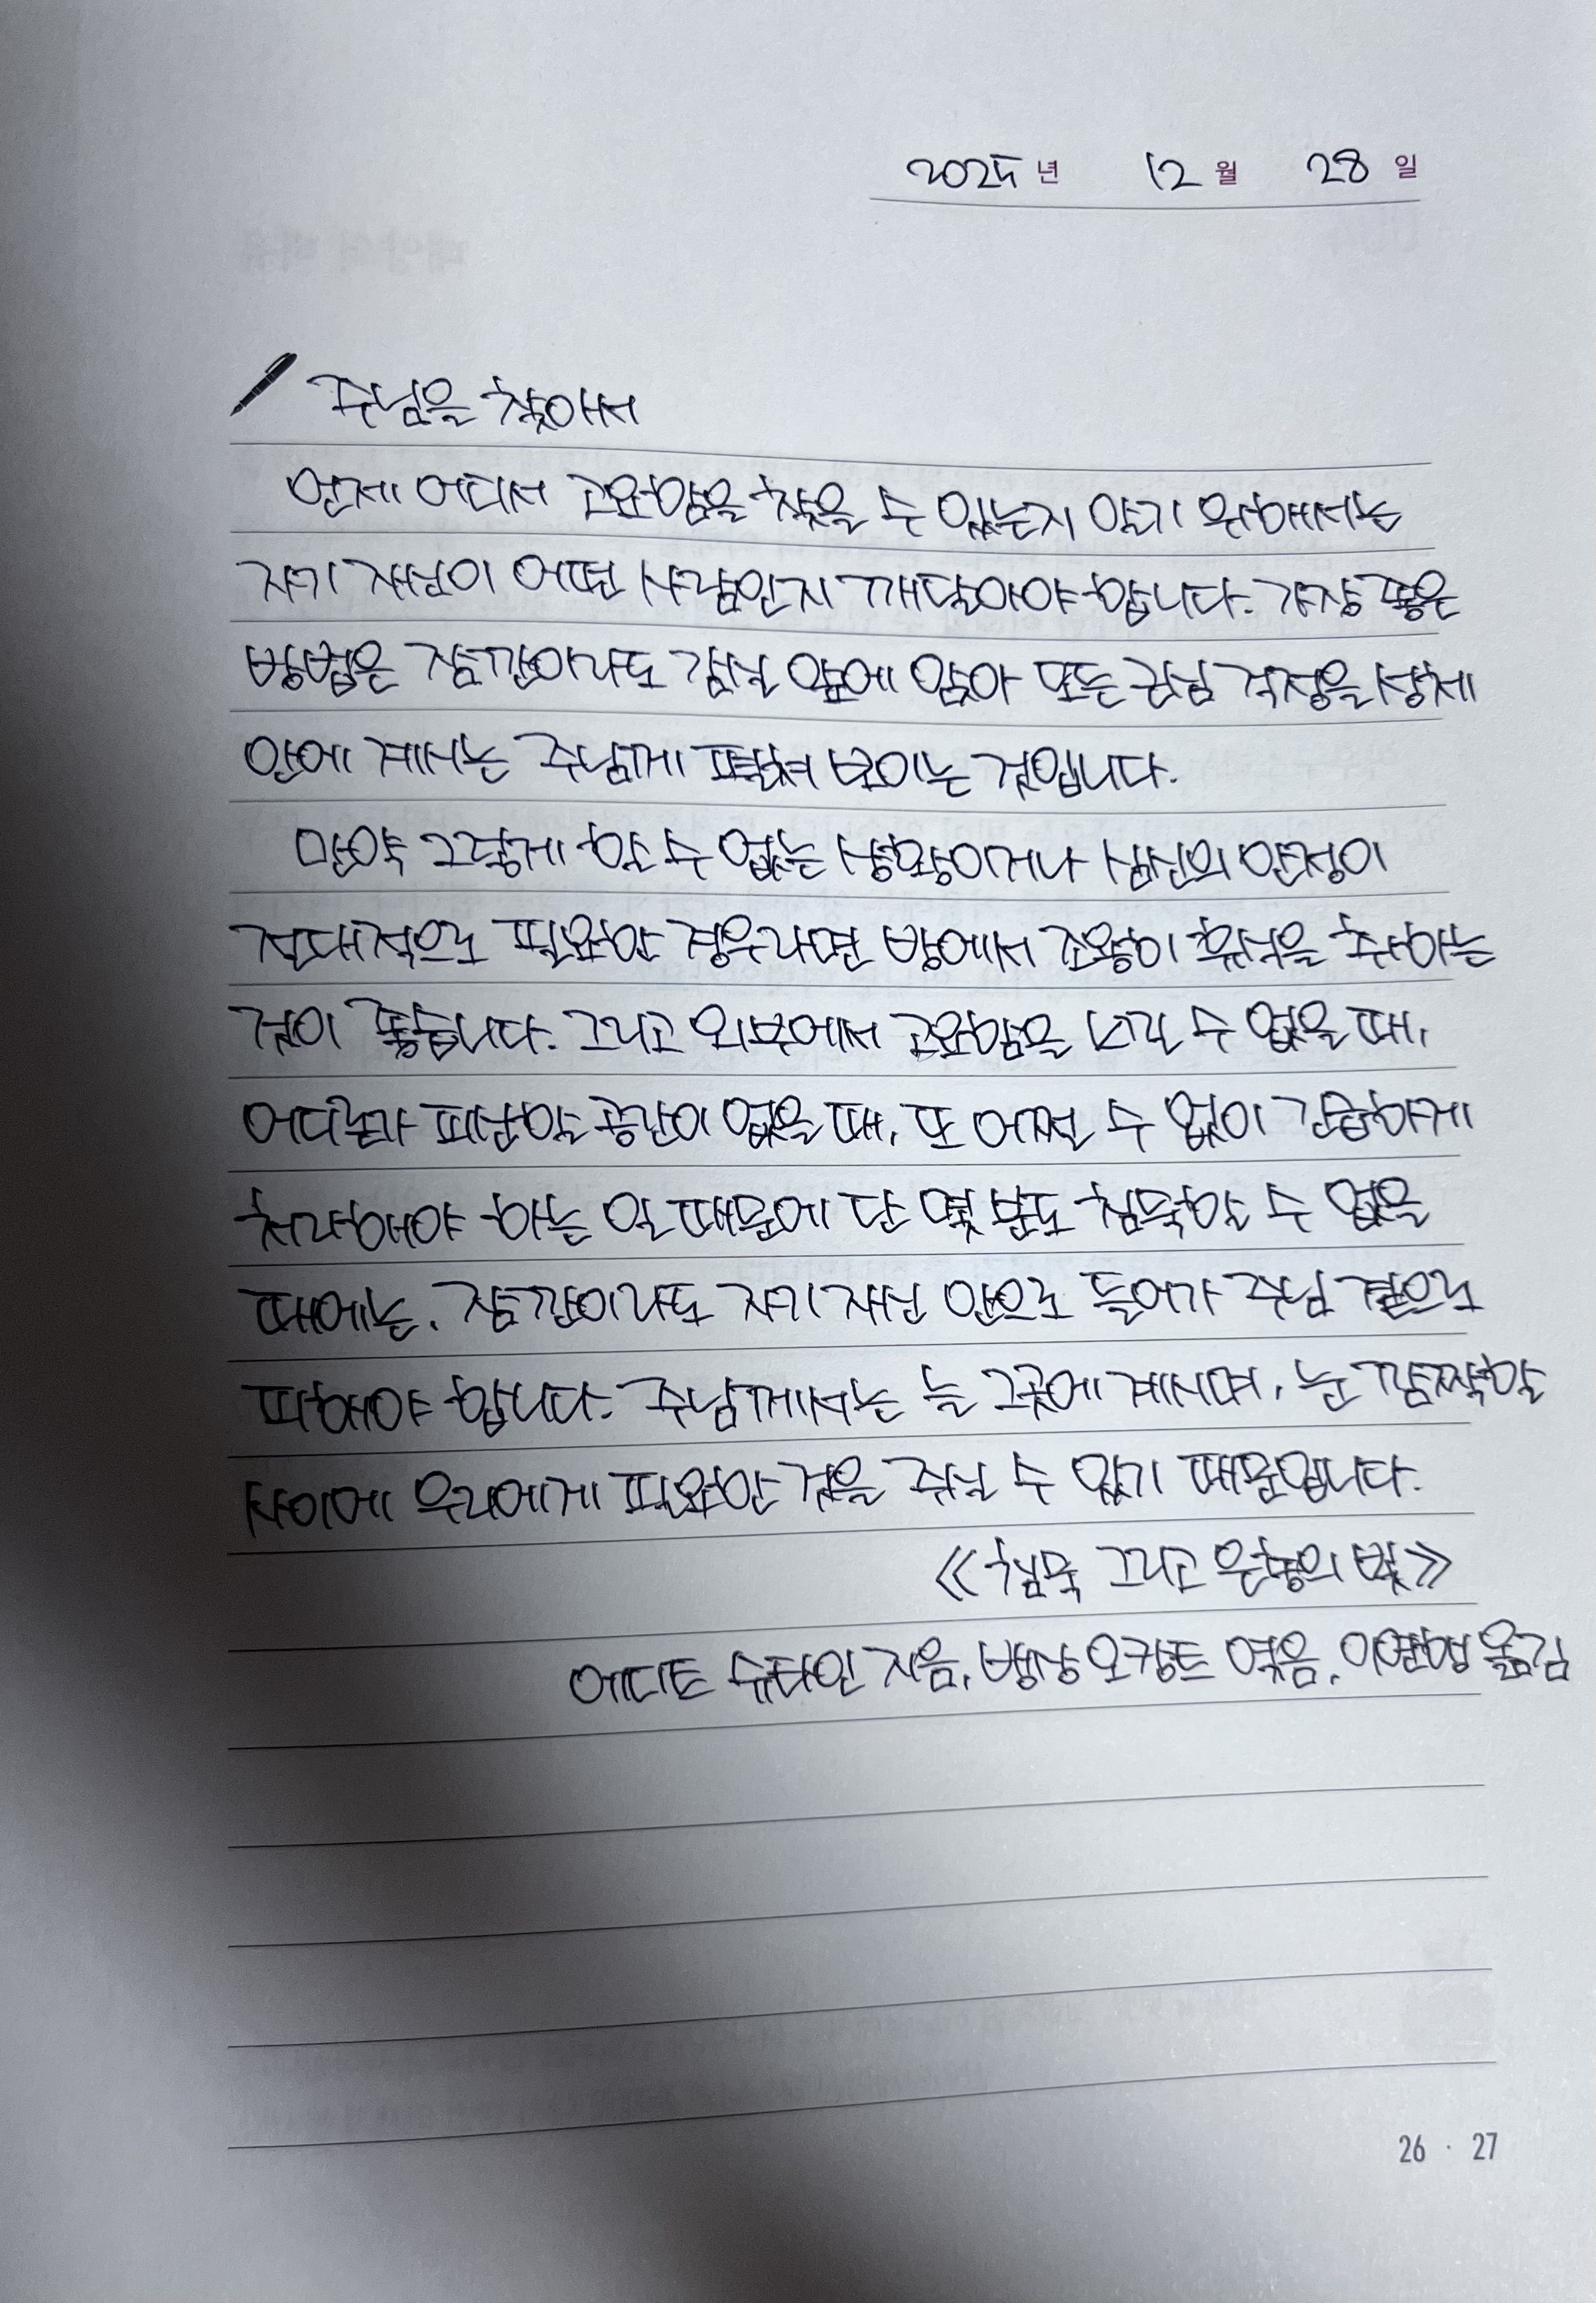 2025년 12월 28일
주님을 찾아서
언제 어디서 고요함을 찾을 수 있는지 알기 위해서는
자기 자신이 어떤 사람인지 깨달아야 합니다. 가장 좋은
방법은 잠깐이라도 감실 앞에 앉아 모든 근심 걱정을 성체
안에 계시는 주님께 펼쳐 보이는 것입니다.
만약 그렇게 할 수 없는 상황이거나 심신의 안정이
절대적으로 필요한 경우라면 방에서 조용히 휴식을 취하는
것이 좋습니다. 그리고 외부에서 고요함을 느낄 수 없을 때,
어디론가 피신할 공간이 없을 때, 또 어쩔 수 없이 긴급하게
처리해야 하는 일 때문에 단 몇 분도 침묵할 수 없을
때에는, 잠깐이라도 자기 자신 안으로 들어가 주님 곁으로
피해야 합니다. 주님께서는 늘 그곳에 계시며, 눈 깜짝할
사이에 우리에게 필요한 것을 주실 수 있기 때문입니다.
《침묵 그리고 은총의 빛》
에디트 슈타인 지음, 뱅상 오캉트 엮음, 이연행 옮김
26 · 27